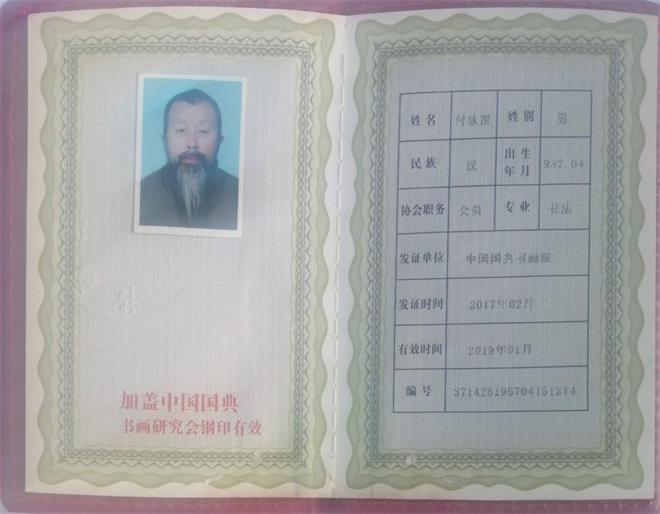 加盖中国国典
书画研究会钢印有效
姓名 性别 男
民族 汉 出生年月 957.04
协会职务 会员 专业 书法
发证单位 中国国典书画院
发证时间 2017年02月
有效时间 2019年01月
编号